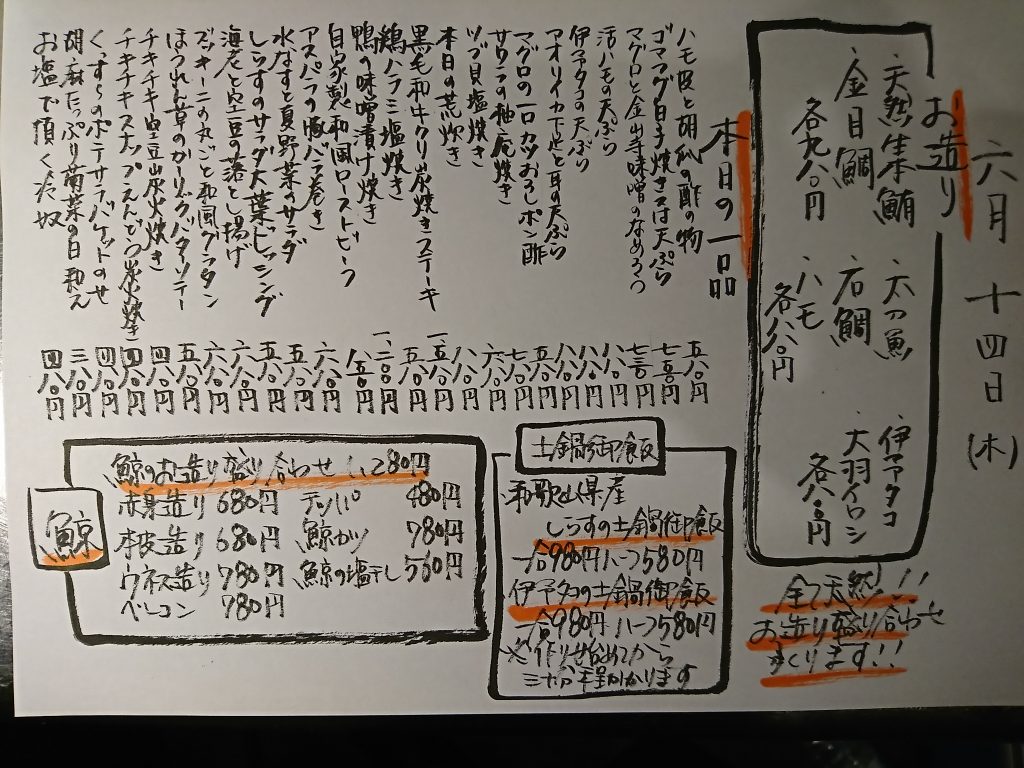 六月十四日(木)
お造り
・天然生本鮪 ・太刀魚 ・伊予タコ
・金目鯛 ・石鯛 ・大羽イワシ
各九八〇円 ・ハモ 各八〇円
各八〇円
全て天然!!
お造り盛り合わせ
つくります!!
本日の一品
ハモ皮と胡瓜の酢の物 五八〇円
ゴママグロ白子焼き又は天ぷら 七五〇円
マグロと金山寺味噌のなめろう 七三〇円
活ハモの天ぷら 八八〇円
伊予タコの天ぷら 八八〇円
アオリイカ下足と耳の天ぷら 五八〇円
マグロの一口カツおろしポン酢 七八〇円
サワラの柚庵焼き 六八〇円
ツブ貝塩焼き 八八〇円
本日の荒炊き 五八〇円
黒毛和牛クリ炭焼きステーキ
鶏ハラミ塩焼き
鴨の味噌漬け焼き
自家製和風ローストビーフ
アスパラの豚バラ巻き
水なすと夏野菜のサラダ
しらすのサラダ大葉ドレッシング
海老と空豆の落とし揚げ
ズッキーニの丸ごと和風グラタン
ほうれん草のガーリックバターソテー
チキチキ空豆炭火焼き
チキチキスナップえんどう炭焼き
くんすらのポテサラバケットのせ
胡麻たっぷり菊菜の白和え 三八〇円
お塩で頂く冷奴 四八〇円
土鍋御飯
和歌山県産
しらすの土鍋御飯
一合980円ハーフ580円
伊予タコの土鍋御飯
一合980円ハーフ580円
※作り始めてから
三十分程かかります
鯨
鯨のお造り盛り合わせ 1,280円
赤身造り 680円 テッパ 480円
本皮造り 680円 鯨カツ 780円
ウネス造り 780円 鯨の塩干し 560円
ベーコン 780円